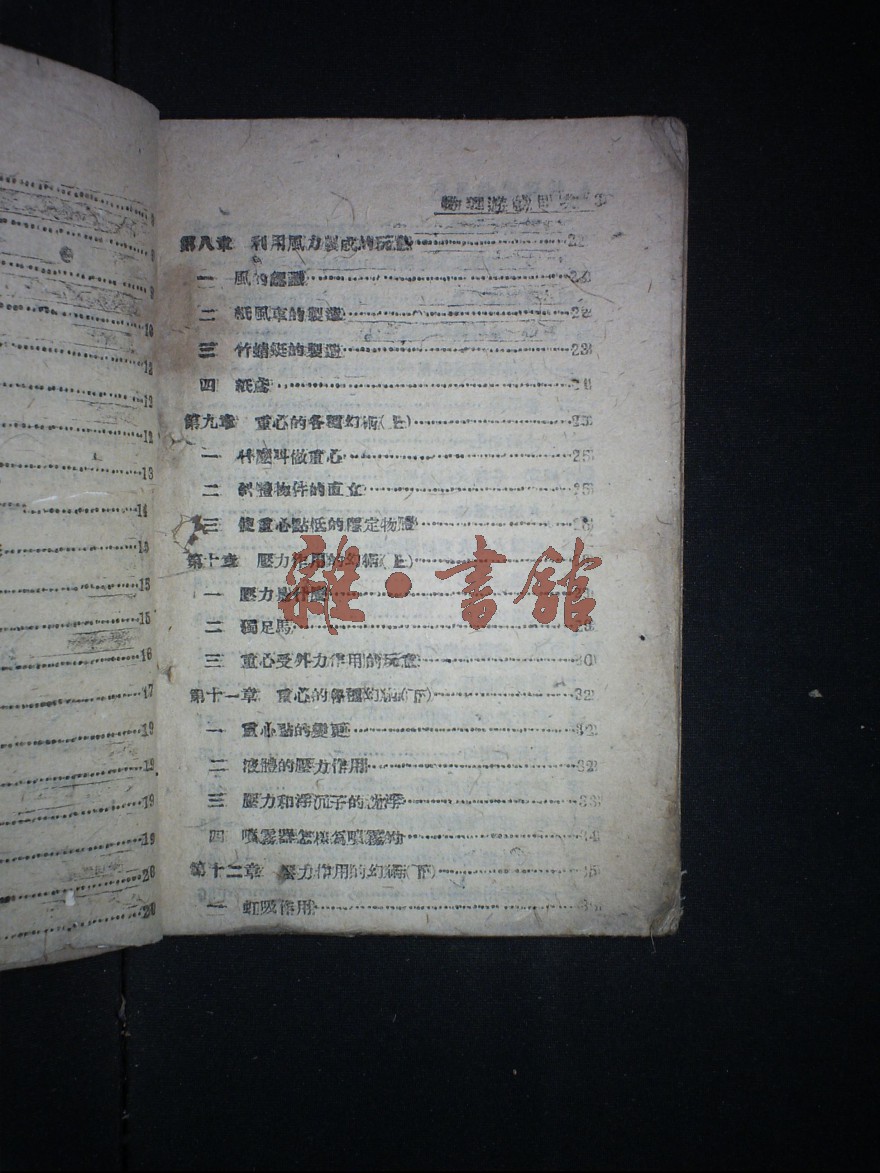 物理遊戲
第八章 利用風力製成的玩意 22
一 風的 22
二 紙風車的製造 22
三 竹蜻蜓的製造 23
四 紙鳶 24
第九章 重心的各種幻術(上) 25
一 什麼叫做重心 25
二 軟體物件的直立 25
三 使重心點低的穩定物體
第十章 壓力作用的幻術(上)
一 壓力是什麼
二 獨足馬 29
三 重心受外力作用的玩意 30
第十一章 重心的各種幻術(下) 32
一 重心點的變更 32
二 液體的壓力作用 32
三 壓力和浮沉子的沈浮 33
四 噴霧器怎樣會噴霧的 34
第十二章 壓力作用的幻術(下) 35
一 虹吸作用 35
雜·書館
9
10
12
12
12
13
14
15
15
16
17
19
19
19
19
20
20